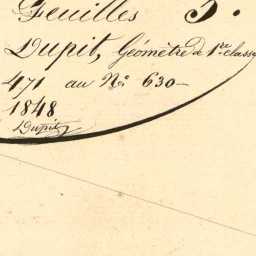 Feuilles 3.
Dupit, Géomètre de 1re classe
471 au No 630
1848
Dupit